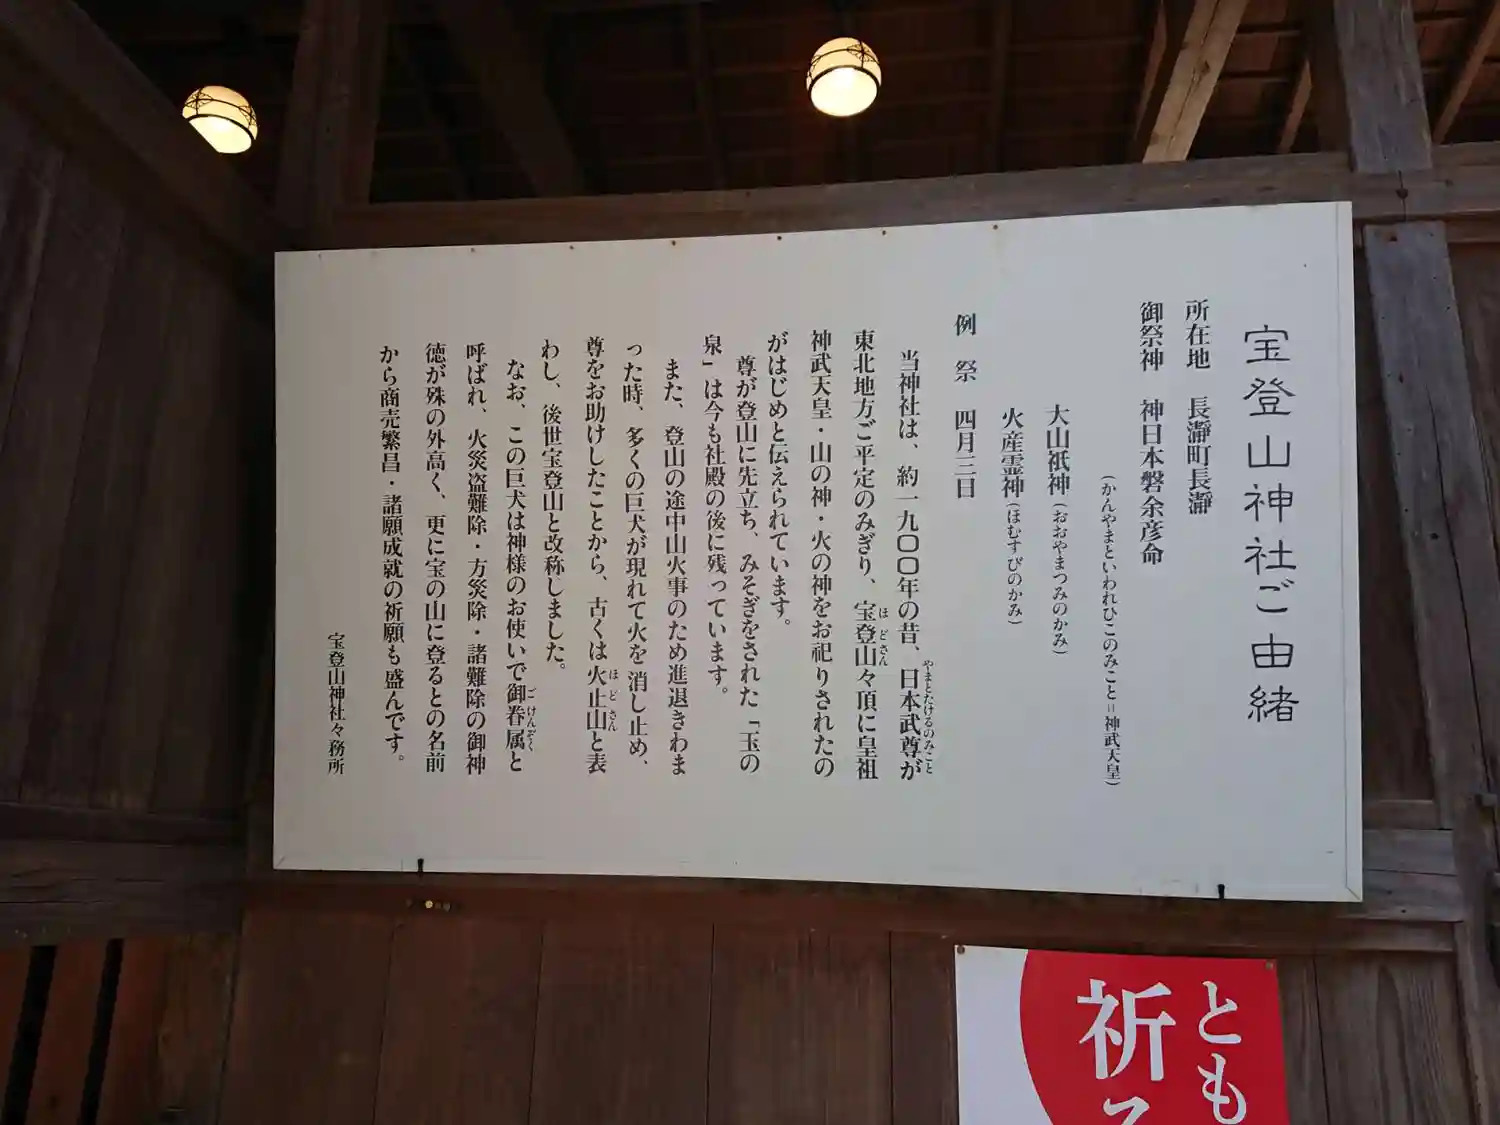 宝登山神社ご由緒
所在地 長瀞町長瀞
御祭神 神日本磐余彦命
(かんやまといわれひこのみこと=神武天皇)
大山祇神(おおやまつみのかみ)
火産霊神(ほむすびのかみ)
例 祭 四月三日
当神社は、約一九〇〇年の昔、日本武尊が
やまとたけるのみこと
東北地方ご平定のみぎり、宝登山々頂に皇祖
ほどさん
神武天皇・山の神・火の神をお祀りされたの
がはじめと伝えられています。
尊が登山に先立ち、みそぎをされた「玉の
泉」は今も社殿の後に残っています。
また、登山の途中山火事のため進退きわま
った時、多くの巨犬が現れて火を消し止め、
尊をお助けしたことから、古くは火止山と表
ほどさん
わし、後世宝登山と改称しました。
なお、この巨犬は神様のお使いで御眷属と
ごけんぞく
呼ばれ、火災盗難除・方災除・諸難除の御神
徳が殊の外高く、更に宝の山に登るとの名前
から商売繁昌・諸願成就の祈願も盛んです。
宝登山神社々務所
とも
祈